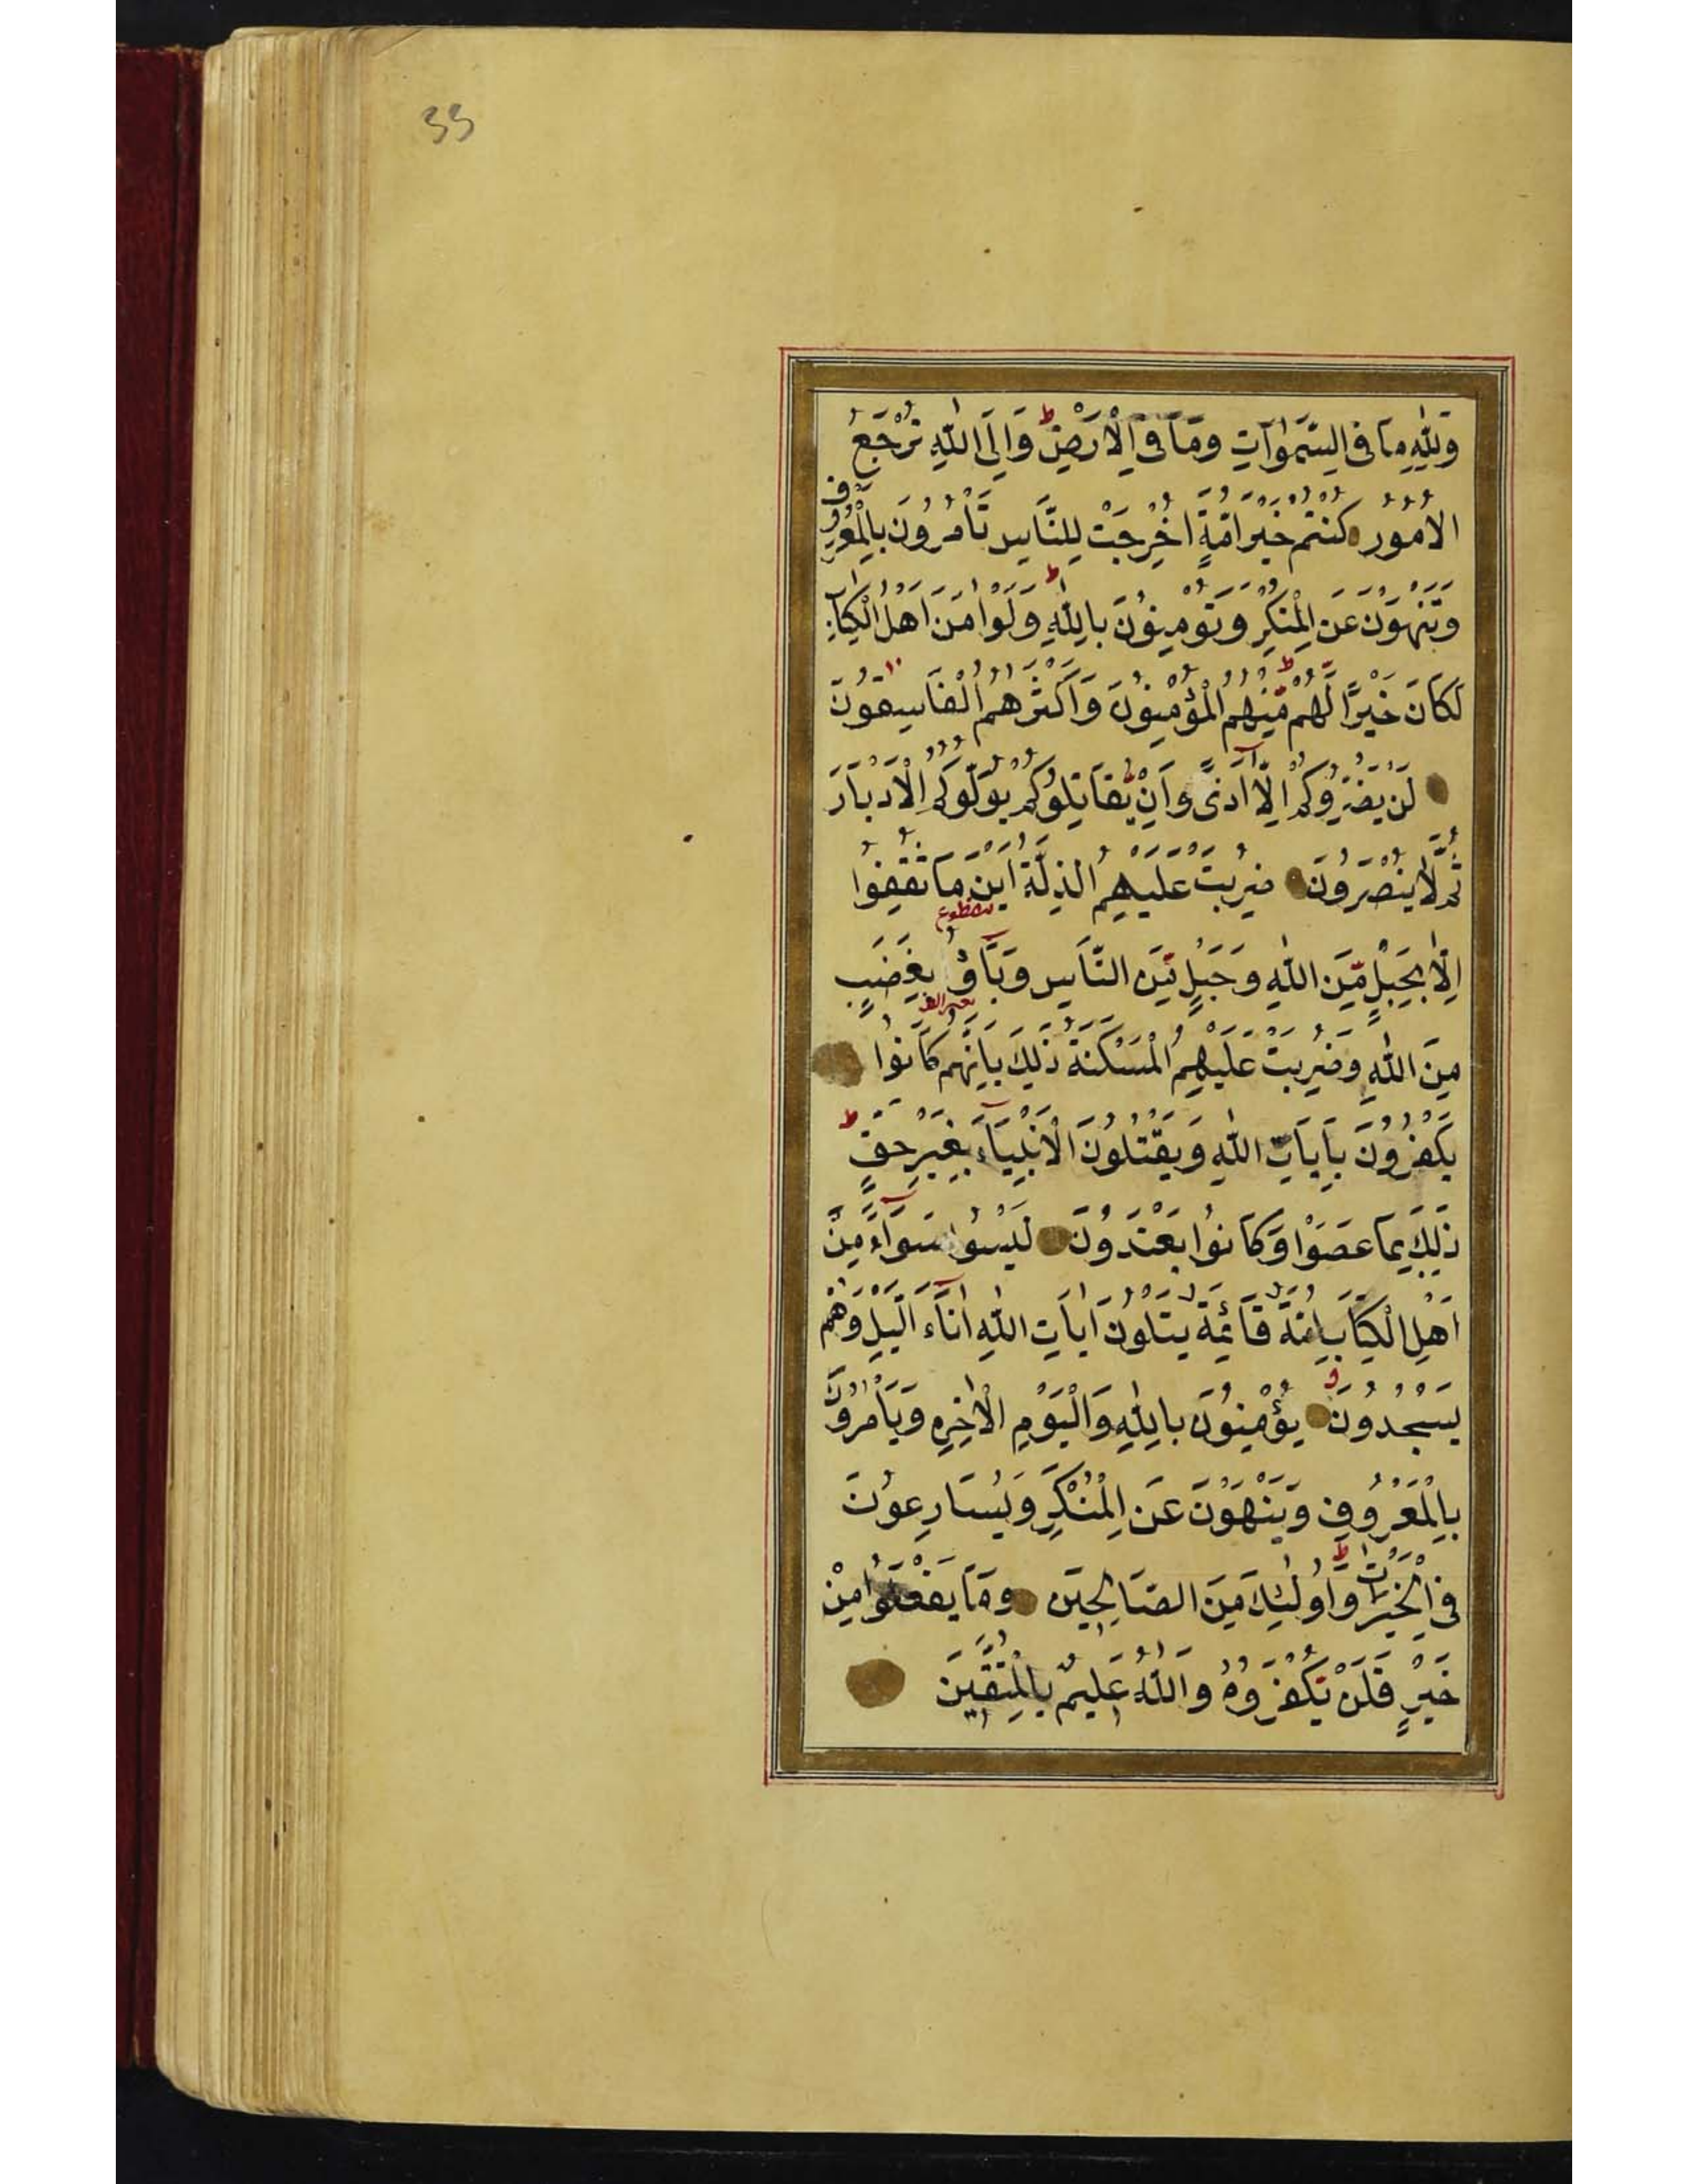 33
وَلِلّٰهِ مَا فِى السَّمٰوَاتِ وَمَا فِى الْاَرْضِ ط وَاِلَى اللّٰهِ تُرْجَعُ
الْاُمُورُ كُنْتُمْ خَيْرَ اُمَّةٍ اُخْرِجَتْ لِلنَّاسِ تَأْمُرُونَ بِالْمَعْرُوفِ
وَتَنْهَوْنَ عَنِ الْمُنْكَرِ وَتُؤْمِنُونَ بِاللّٰهِ ط وَلَوْ اٰمَنَ اَهْلُ الْكِتَابِ
لَكَانَ خَيْرًا لَّهُمْ ط مِّنْهُمُ الْمُؤْمِنُونَ وَاَكْثَرُهُمُ الْفَاسِقُونَ
لَنْ يَضُرُّوكُمْ اِلَّا اَذًى وَاِنْ يُّقَاتِلُوكُمْ يُوَلُّوكُمُ الْاَدْبَارَ
ثُمَّ لَا يُنْصَرُونَ ضُرِبَتْ عَلَيْهِمُ الذِّلَّةُ اَيْنَ مَا ثُقِفُوا
اِلَّا بِحَبْلٍ مِّنَ اللّٰهِ وَحَبْلٍ مِّنَ النَّاسِ وَبَآؤُ بِغَضَبٍ
مِنَ اللّٰهِ وَضُرِبَتْ عَلَيْهِمُ الْمَسْكَنَةُ ذٰلِكَ بِاَنَّهُمْ كَانُوا
يَكْفُرُونَ بِاٰيَاتِ اللّٰهِ وَيَقْتُلُونَ الْاَنْبِيَآءَ بِغَيْرِ حَقٍّ ط
ذٰلِكَ بِمَا عَصَوْا وَكَانُوا يَعْتَدُونَ لَيْسُوا سَوَآءً مِّنْ
اَهْلِ الْكِتَابِ اُمَّةٌ قَآئِمَةٌ يَتْلُونَ اٰيَاتِ اللّٰهِ اٰنَآءَ الَّيْلِ وَهُمْ
يَسْجُدُونَ يُؤْمِنُونَ بِاللّٰهِ وَالْيَوْمِ الْاٰخِرِ وَيَأْمُرُونَ
بِالْمَعْرُوفِ وَيَنْهَوْنَ عَنِ الْمُنْكَرِ وَيُسَارِعُونَ
فِى الْخَيْرَاتِ ط وَاُولٰئِكَ مِنَ الصَّالِحِينَ وَمَا يَفْعَلُوا مِنْ
خَيْرٍ فَلَنْ يُكْفَرُوهُ وَاللّٰهُ عَلِيمٌ بِالْمُتَّقِينَ